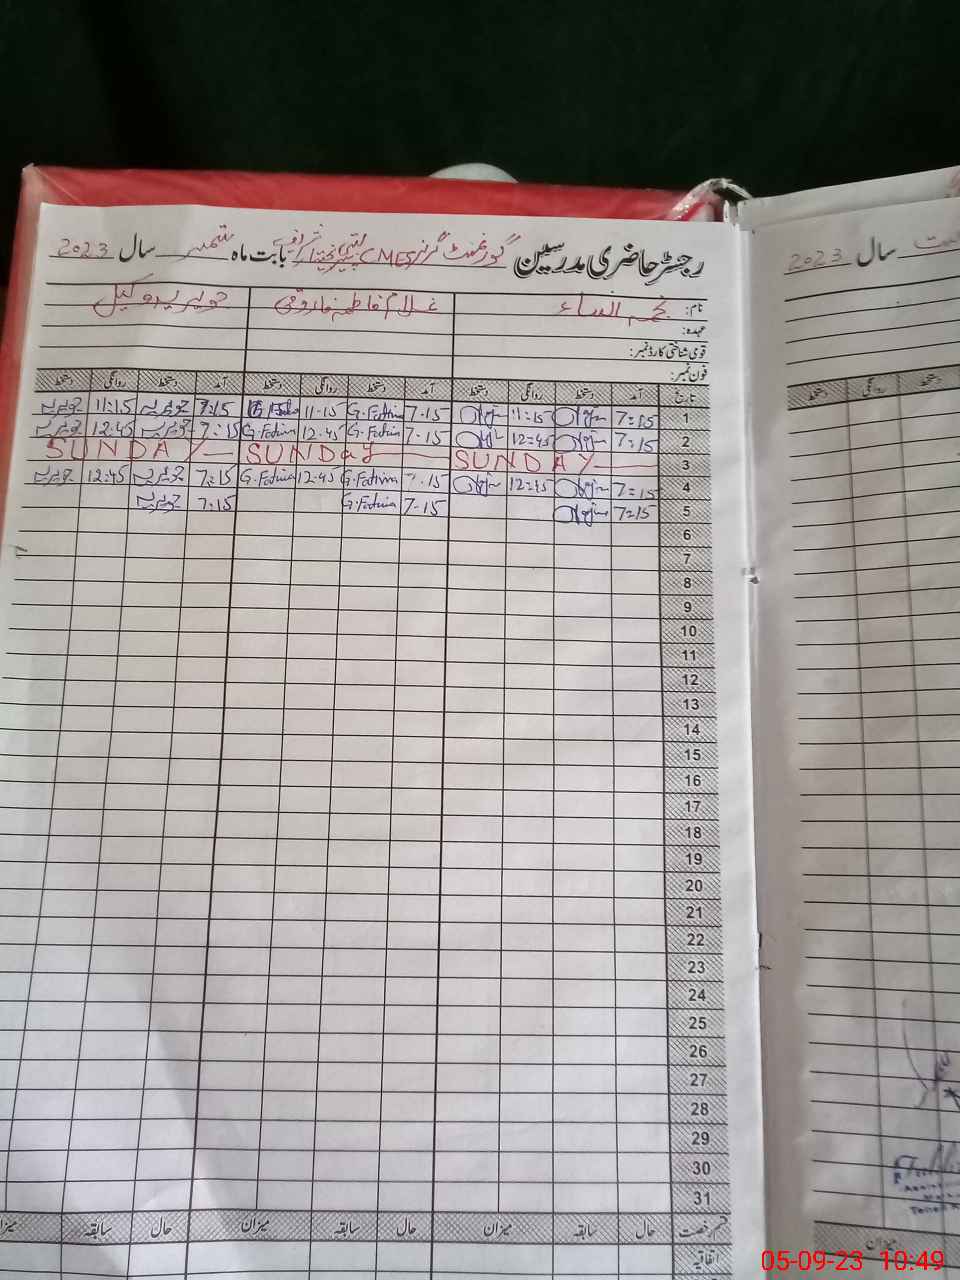 رجسٹر حاضری مدرسین گورنمنٹ گرلز CMES بابت ماہ ستمبر سال 2023
سال 2023
نام: نجمہ النساء غلام فاطمہ فاروقی جویریہ وکیل
عہدہ:
قومی شناختی کارڈ نمبر:
فون نمبر:
تاریخ آمد دستخط روانگی دستخط آمد دستخط روانگی دستخط آمد دستخط روانگی دستخط
دستخط روانگی دستخط
1 7:15 11:15 7.15 G. Fatima 11-15 7:15 جویریہ 11:15 جویریہ
2 7:15 12:45 7.15 G. Fatima 12.45 G. Fatima 7:15 جویریہ 12:45 جویریہ
3 SUNDAY SUNDay SUNDAY
4 7:15 12:45 7.15 G. Fatima 12.45 G. Fatima 7:15 جویریہ 12:45 جویریہ
5 7:15 7-15 G. Fatima 7.15 جویریہ
6
7
8
9
10
11
12
13
14
15
16
17
18
19
20
21
22
23
24
25
26
27
28
29
30
31
قسم رخصت حال سابقہ میزان حال سابقہ میزان حال سابقہ میزان
میزان
اتفاقیہ
05-09-23 10:49